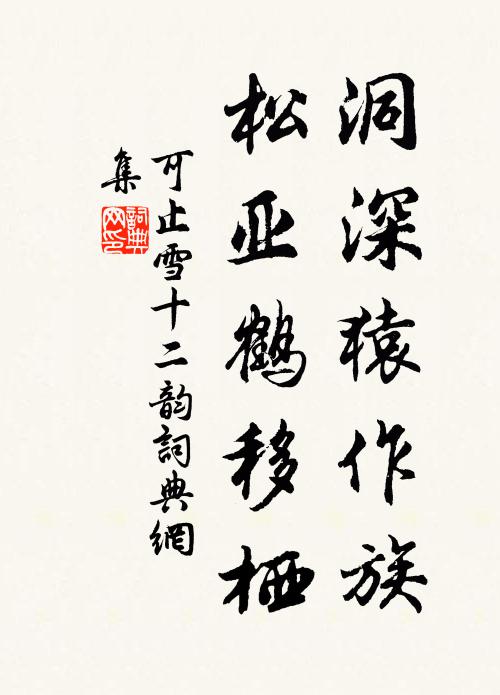 洞深猿作族
松亚鹤移栖
可止雪十二韵詞典網
集
詞典
网印